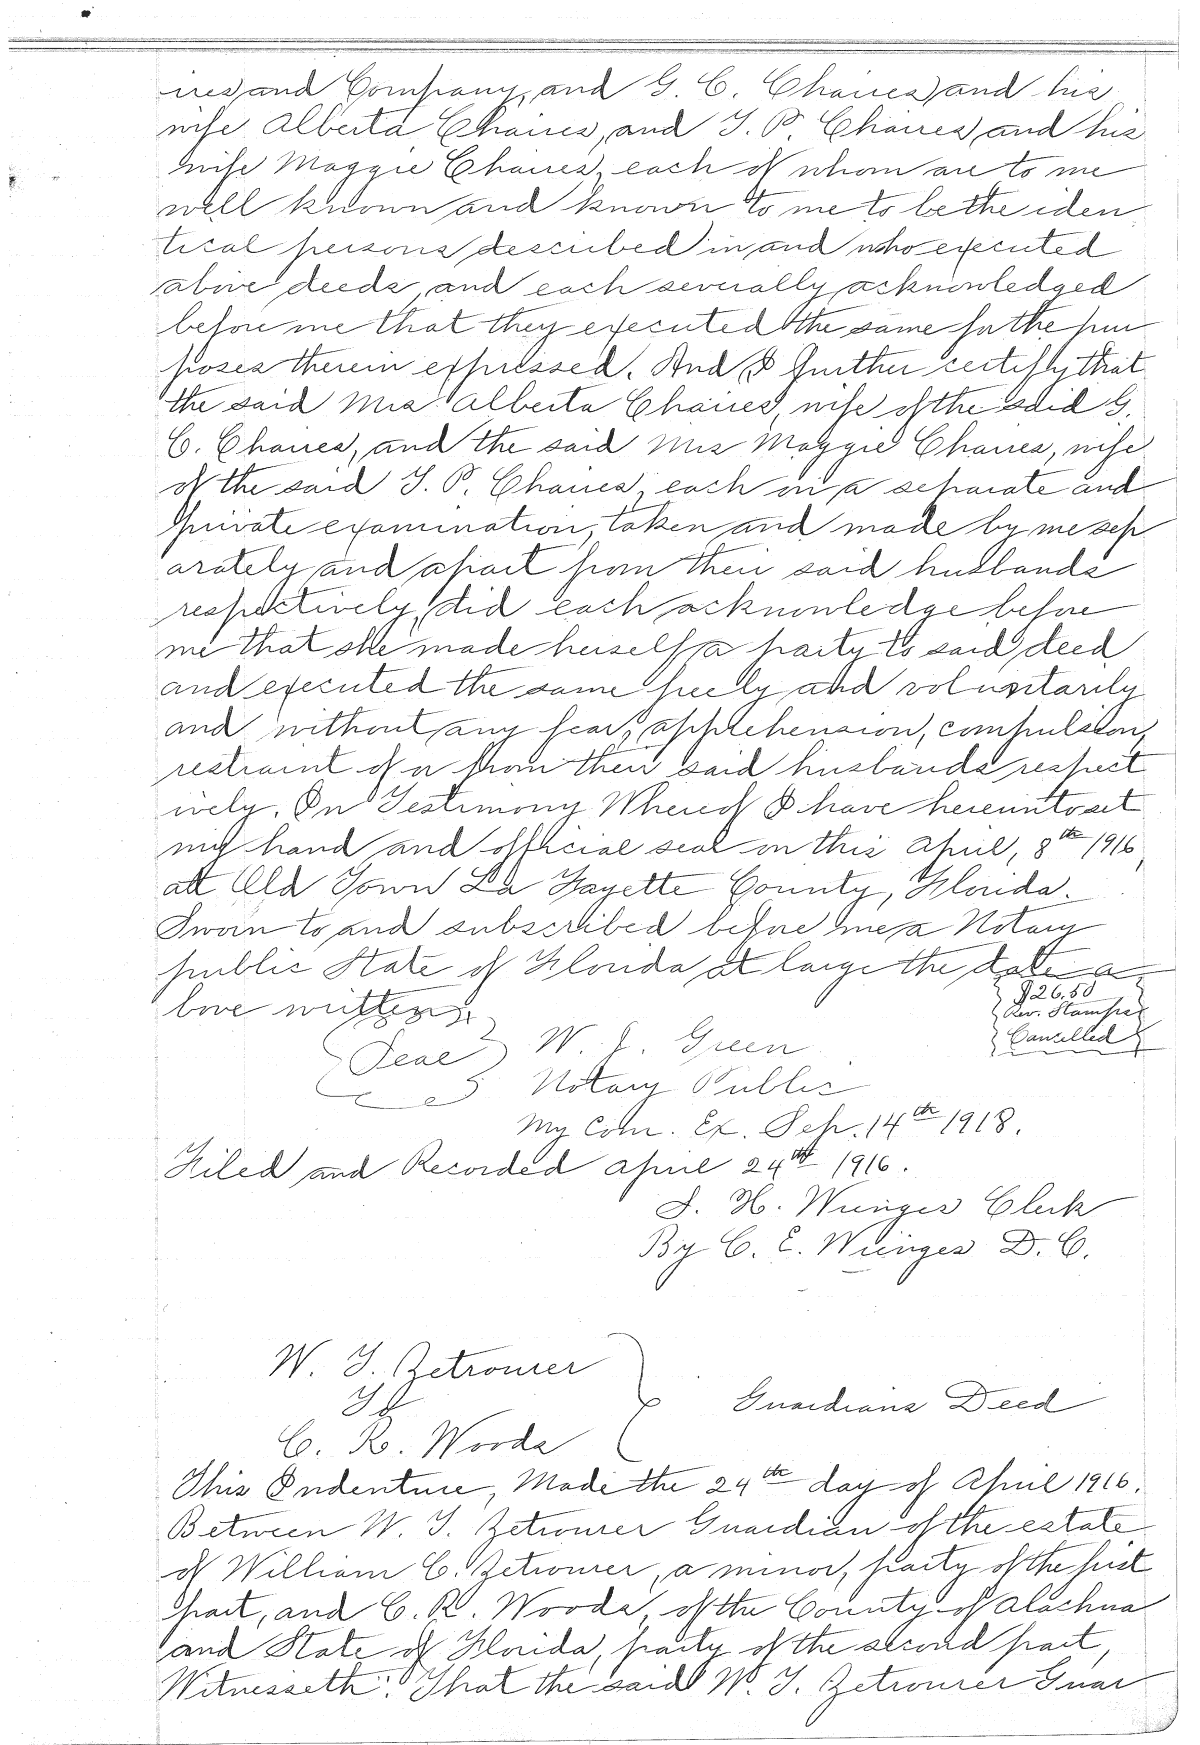 ires and Company, and G. C. Chaires and his
wife Alberta Chaires, and T. P. Chaires and his
wife Maggie Chaires, each of whom are to me
well known and known to me to be the iden
tical persons described in and who executed
above deeds, and each severally acknowledged
before me that they executed the same for the pur
poses therein expressed. And I further certify that
the said Mrs Alberta Chaires, wife of the said G.
C. Chaires, and the said Mrs Maggie Chaires, wife
of the said T. P. Chaires, each on a separate and
private examination, taken and made by me sep
arately and apart from their said husbands
respectively, did each acknowledge before
me that she made herself a party to said deed
and executed the same freely and voluntarily
and without any fear, apprehension, compulsion,
restraint of or from their said husbands respect
ively. In Testimony Whereof I have hereunto set
my hand and official seal on this April, 8th 1916,
at Old Town La Fayette County, Florida.
Sworn to and subscribed before me a Notary
public State of Florida at large the date a
bove written.
$26.50
Rev. Stamps
Cancelled
Seal
W. J. Green
Notary Public
My Com. Ex. Sep. 14th 1918.
Filed and Recorded April 24th 1916.
S. H. Wienges Clerk
By C. E. Wienges D. C.
W. T. Zetrouer
To
C. R. Woods
Guardians Deed
This Indenture, Made the 24th day of April 1916.
Between W. T. Zetrouer Guardian of the estate
of William C. Zetrouer, a minor, party of the first
part, and C. R. Woods, of the County of Alachua
and State of Florida, party of the second part,
Witnesseth: That the said W. T. Zetrouer Guar